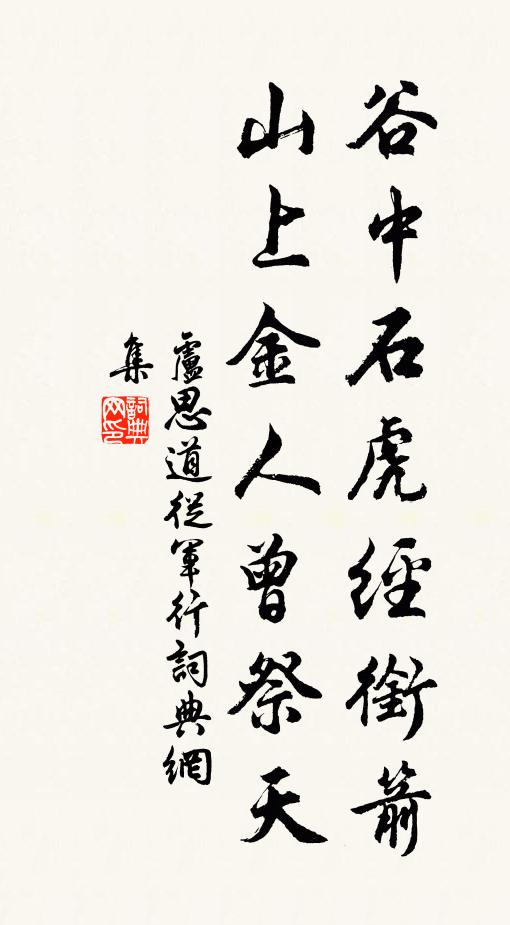 谷中石虎經銜箭
山上金人曾祭天
盧思道從軍行詞典網
集
詞典网印